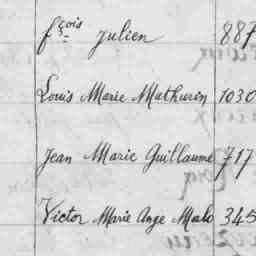 fçois Julien 887
Louis Marie Mathurin 1030
Jean Marie Guillaume 717
Victor Marie Ange Malo 345